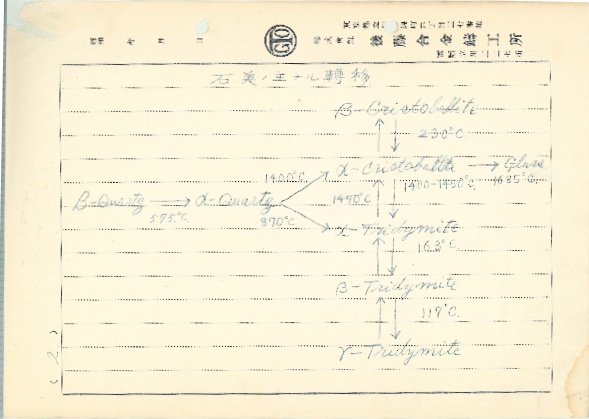 昭和 年 月 日
GTO
株式會社 後藤合金鑄工所
石英ノ主ナル轉移
β-Cristoballite
230°C
α-Cristoballite → Glass
1400°C
1470°C
1400-1450°C
1685°C
β-Quartz → α-Quartz
575°C
870°C
α-Tridymite
163°C
β-Tridymite
117°C
γ-Tridymite
(2)